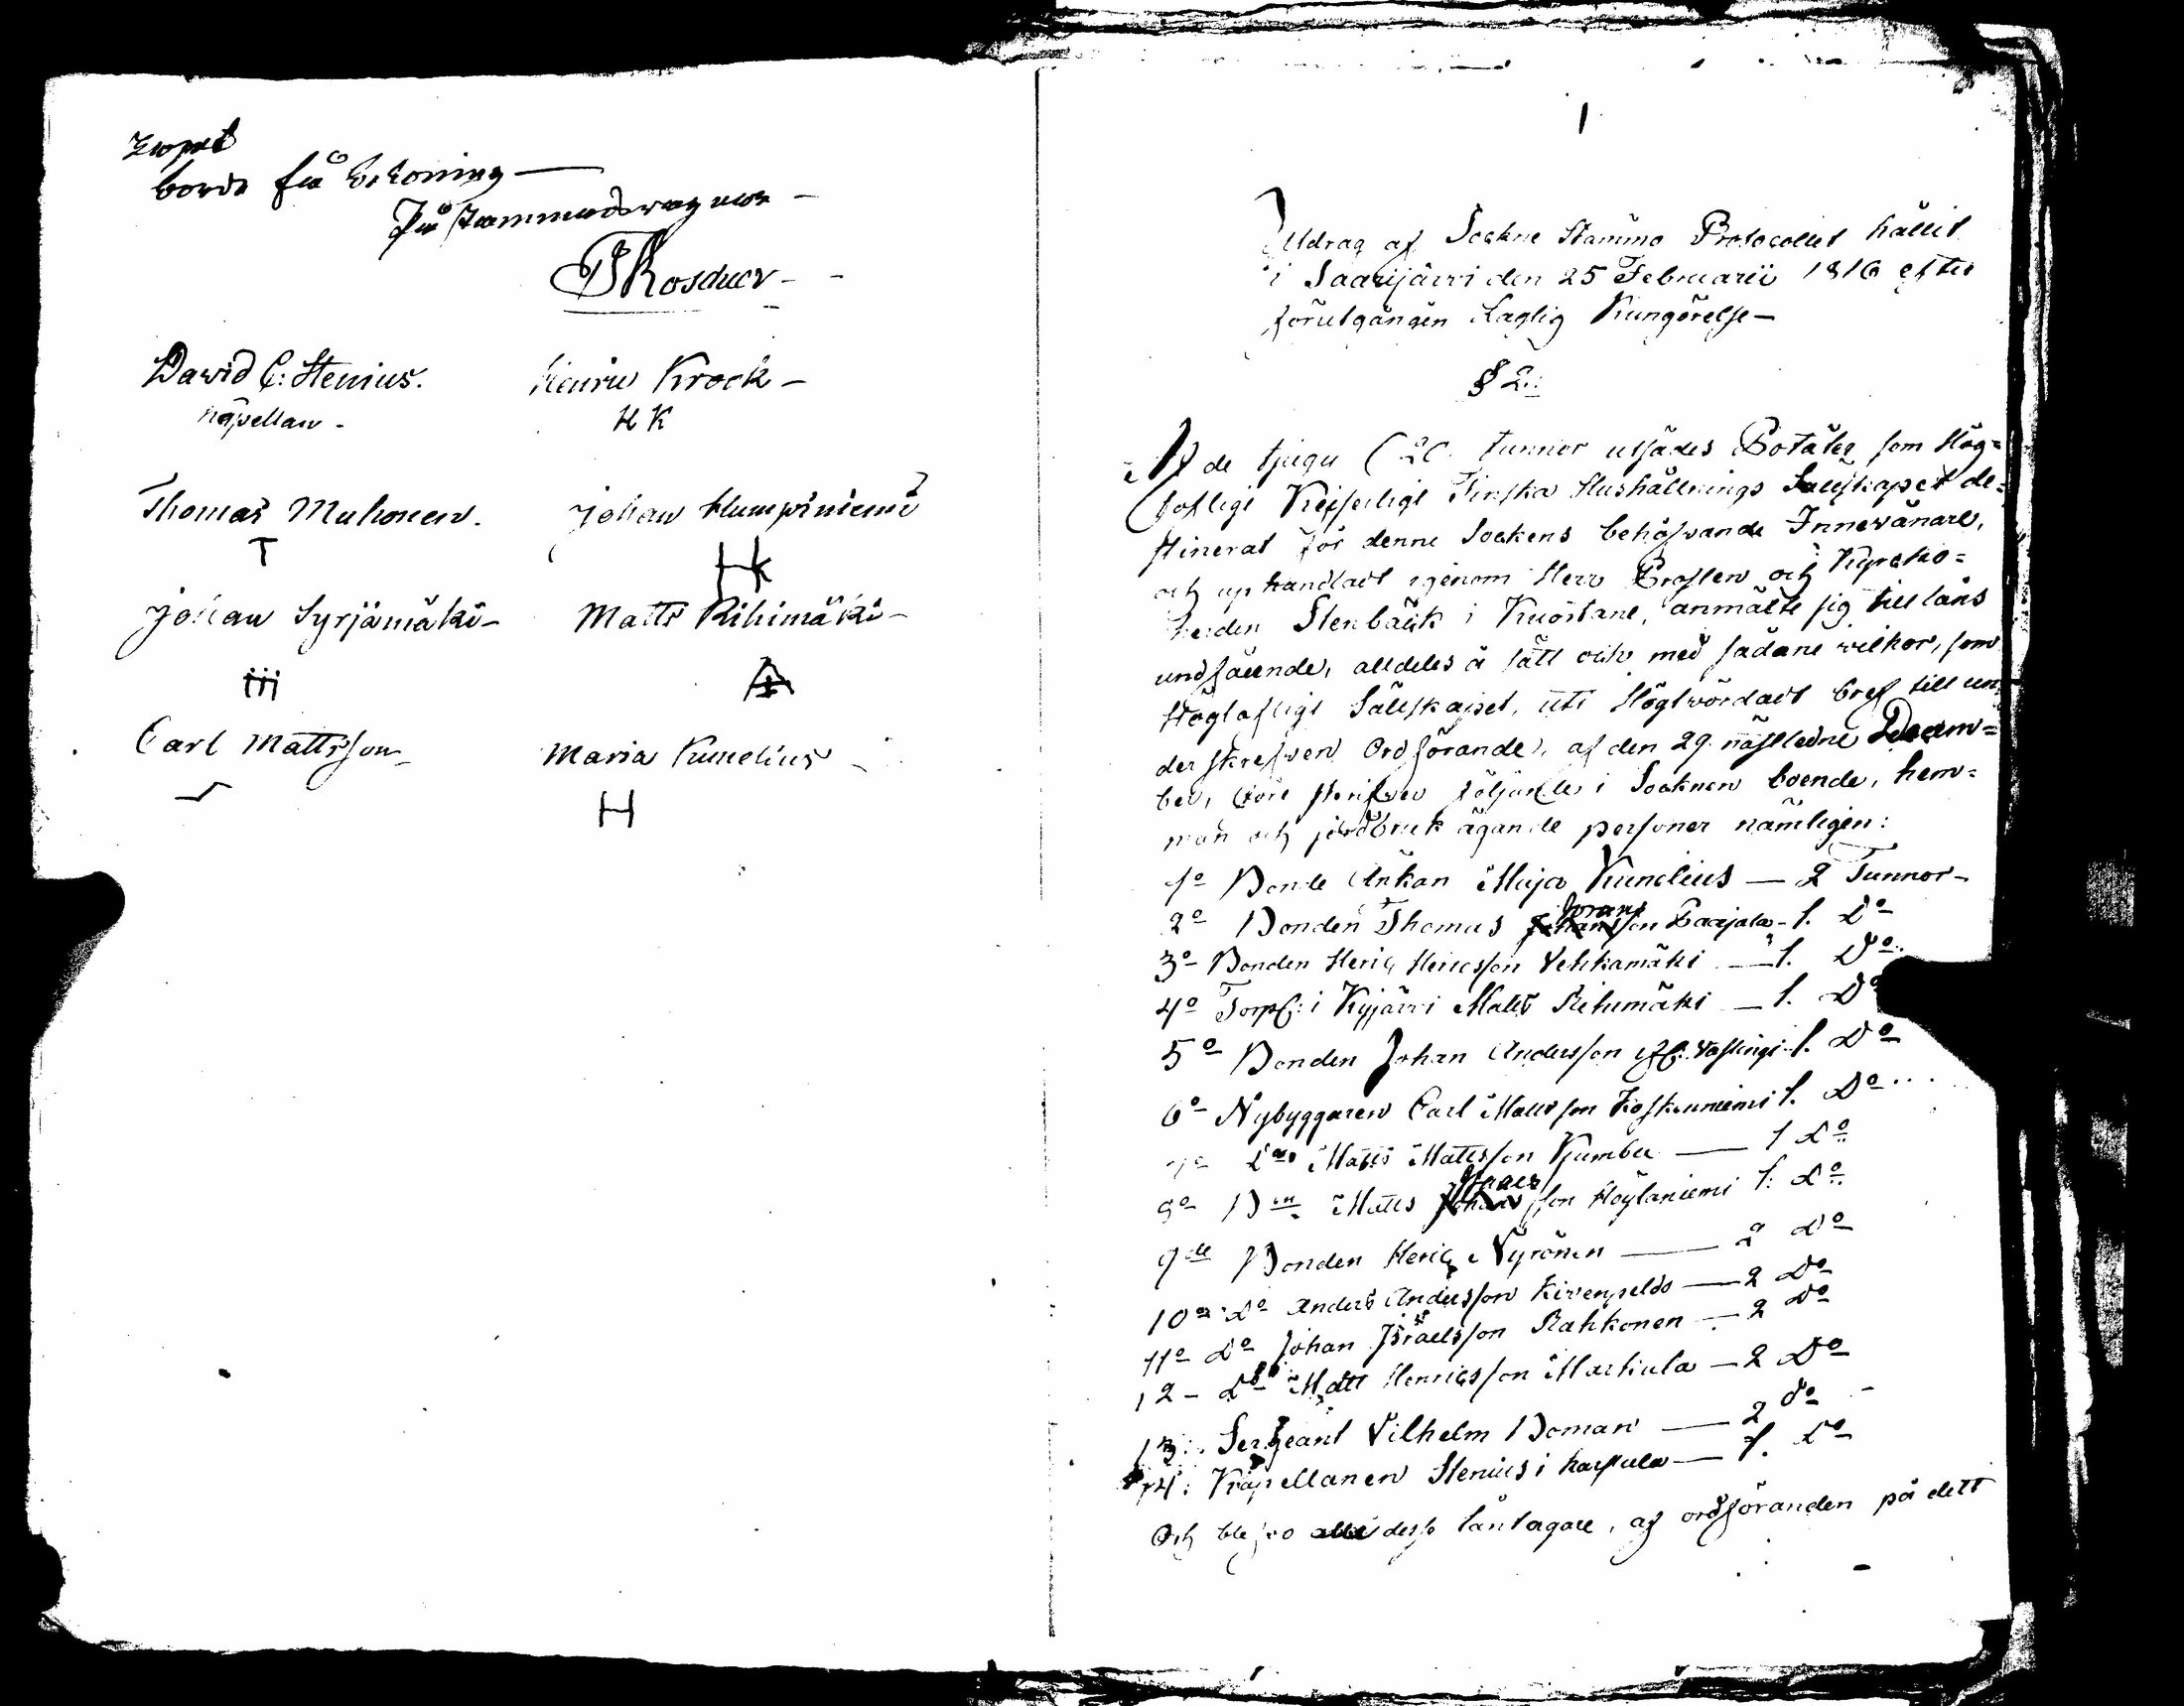 borde få
På Sammanträgnar
David C: Stenius.
Kapellan.
Henric Krook
H K
Thomas Muhonen.
T
Johan Humpiniemi
HK
Johan Syrjämäki
Matts Rihimäki
Carl Mattsson
Maria Kunelius
H
1
Utdrag af Sockne Stämmo Protocollet hållit
i Saarijärvi den 25 Februarii 1816 efter
förutgången Laglig Kungörelse
§ 2:
Af de tjugu (20 tunnor utsädes Potäter som Hög=
lofligt Kejserligt Finska Hushållnings Sällskapet de=
stinerat för denne Sockens behöfvande Innevånare,
och uphandladt igenom Herr Prosten och Kyrcko=
herden Stenbäck i Kuortane, anmälte sig till låns
undfående, alldeles å sätt och med sådane vilkor, som
Högloflige Sällskapet, uti Högtvördadt bref till un
derskrefven Ordförande, af den 29 nästledne Decem=
ber, före skrifver följande i Socknen boende, hem=
man och jordbruk ägande personer nämligen:
1o Bonde Änkan Maja Kunelius — 2 Tunnor
2o Bonden Thomas Görans son Paajala 1. Do
3o Bonden Heric Hericsson Vehkamäki — 1. Do
4o Torp: i Kyjärvi Matts Rihimäki — 1. Do
5o Bonden Johan Andersson 1. Do
6o Nybyggaren Carl Mattsson Koskenniemi 1. Do
7o Do Matts Mattsson Kumbu — 1 Do
8o Bn Matts son Höyläniemi 1: Do
9de Bonden Heric Nyrönen — 2 Do
10o Do Anders Andersson Kivenpelto — 2 Do
11o Do Johan Israelsson Rahkonen — 2 Do
12 - Do Matt Henricsson Markula — 2 Do
13: Sergeant Vilhelm Boman — 2 do
14: Kapellanen Stenius i Karstula — 1. Do
Och blefvo alle desse låntagare, af ordföranden på dett